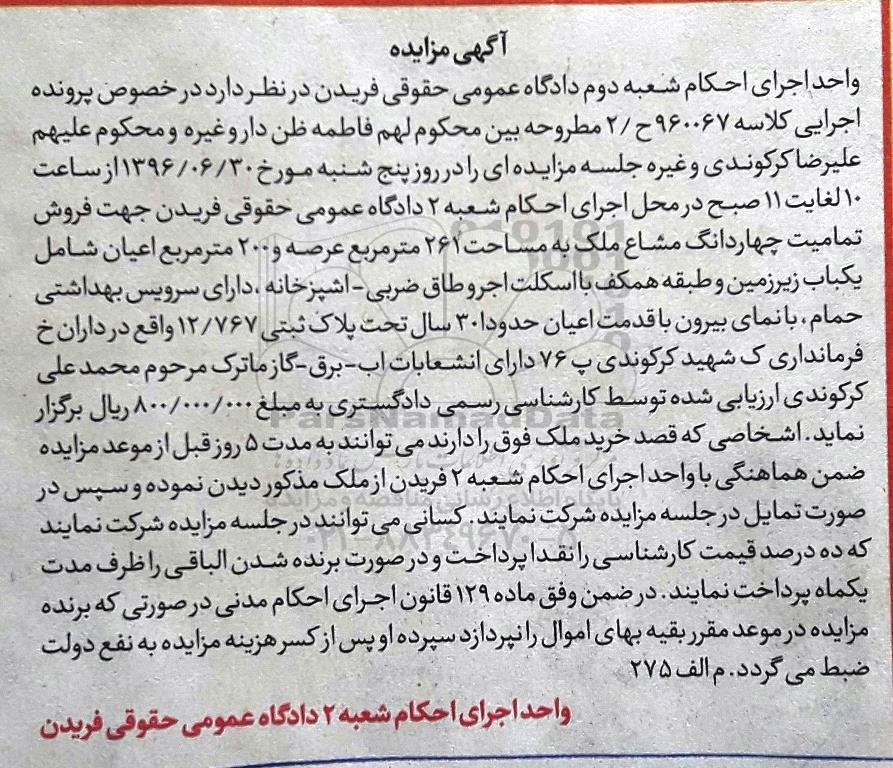 آگهی مزایده
واحد اجرای احکام شعبه دوم دادگاه عمومی حقوقی فریدن در نظر دارد در خصوص پرونده
اجرایی کلاسه ۹۶۰۰۶۷ح /۲ مطروحه بین محکوم لهم فاطمه ظن دار وغیره و محکوم علیهم
علیرضا کرکوندی و غیره جلسه مزایده ای را در روز پنج شنبه مورخ ۱۳۹۶/۰۶/۳۰ از ساعت
۱۰ لغایت ۱۱ صبح در محل اجرای احکام شعبه ۲ دادگاه عمومی حقوقی فریدن جهت فروش
تمامیت چهاردانگ مشاع ملک به مساحت ۲۶۱ مترمربع عرصه و ۲۰۰ مترمربع اعیان شامل
یکباب زیرزمین و طبقه همکف با اسکلت اجر و طاق ضربی-اشپزخانه ،دارای سرویس بهداشتی
حمام، با نمای بیرون با قدمت اعیان حدودا ۳۰ سال تحت پلاک ثبتی ۱۲/۷۶۷ واقع در داران خ
فرمانداری ک شهید کرکوندی پ ۷۶ دارای انشعابات اب-برق-گاز ماترک مرحوم محمد علی
کرکوندی ارزیابی شده توسط کارشناسی رسمی دادگستری به مبلغ ۸۰۰/۰۰۰/۰۰۰ ریال برگزار
نماید. اشخاصی که قصد خرید ملک فوق را دارند می توانند به مدت ۵ روز قبل از موعد مزایده
ضمن هماهنگی با واحد اجرای احکام شعبه ۲ فریدن از ملک مذکور دیدن نموده و سپس در
صورت تمایل در جلسه مزایده شرکت نمایند. کسانی می توانند در جلسه مزایده شرکت نمایند
که ده درصد قیمت کارشناسی را نقدا پرداخت و در صورت برنده شدن الباقی را ظرف مدت
یکماه پرداخت نمایند. در ضمن وفق ماده ۱۲۹ قانون اجرای احکام مدنی در صورتی که برنده
مزایده در موعد مقرر بقیه بهای اموال را نپردازد سپرده او پس از کسر هزینه مزایده به نفع دولت
ضبط می گردد. م الف ۲۷۵
واحد اجرای احکام شعبه ۲ دادگاه عمومی حقوقی فریدن
ParsNamadData
۰۲۱-۸۸۳۴۹۶۷۰-۵